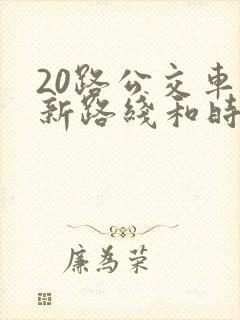 20路公交車
新路綫和時
廉為荣